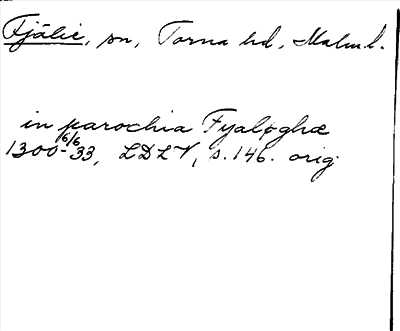 Fjälie, sn, Torna hd, Malm.l.
in parochia Fyaløghæ
1300 6/6 -33, LDLV, s. 146. orig.